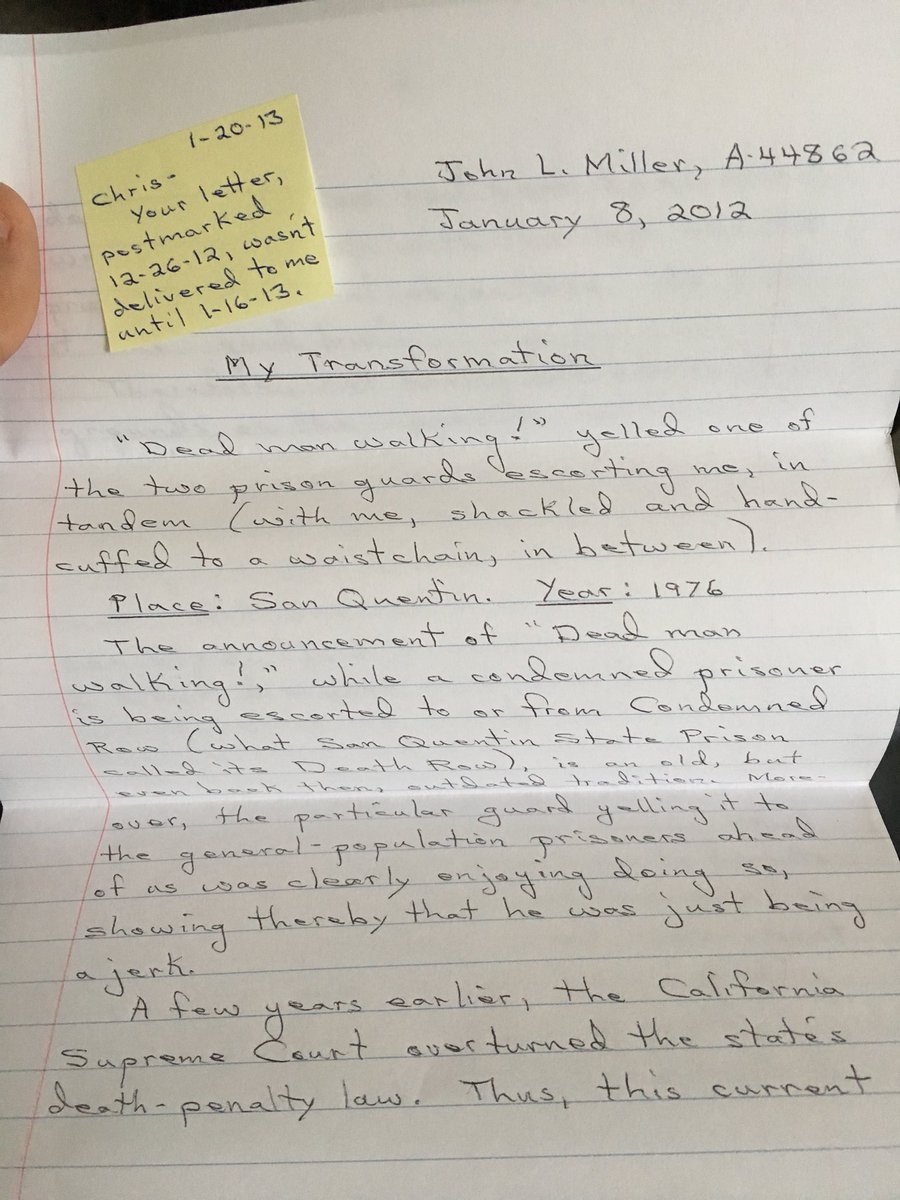 1-20-13
Chris-
Your letter,
postmarked
12-26-12, wasn't
delivered to me
until 1-16-13.
John L. Miller, A-44862
January 8, 2012
My Transformation
"Dead man walking!" yelled one of
the two prison guards escorting me, in
tandem (with me, shackled and hand-
cuffed to a waistchain, in between).
Place: San Quentin. Year: 1976
The announcement of "Dead man
walking!," while a condemned prisoner
is being escorted to or from Condemned
Row (what San Quentin State Prison
called its Death Row), is an old, but
even back then, outdated tradition. More-
over, the particular guard yelling it to
the general-population prisoners ahead
of us was clearly enjoying doing so,
showing thereby that he was just being
a jerk.
A few years earlier, the California
Supreme Court overturned the state's
death-penalty law. Thus, this current